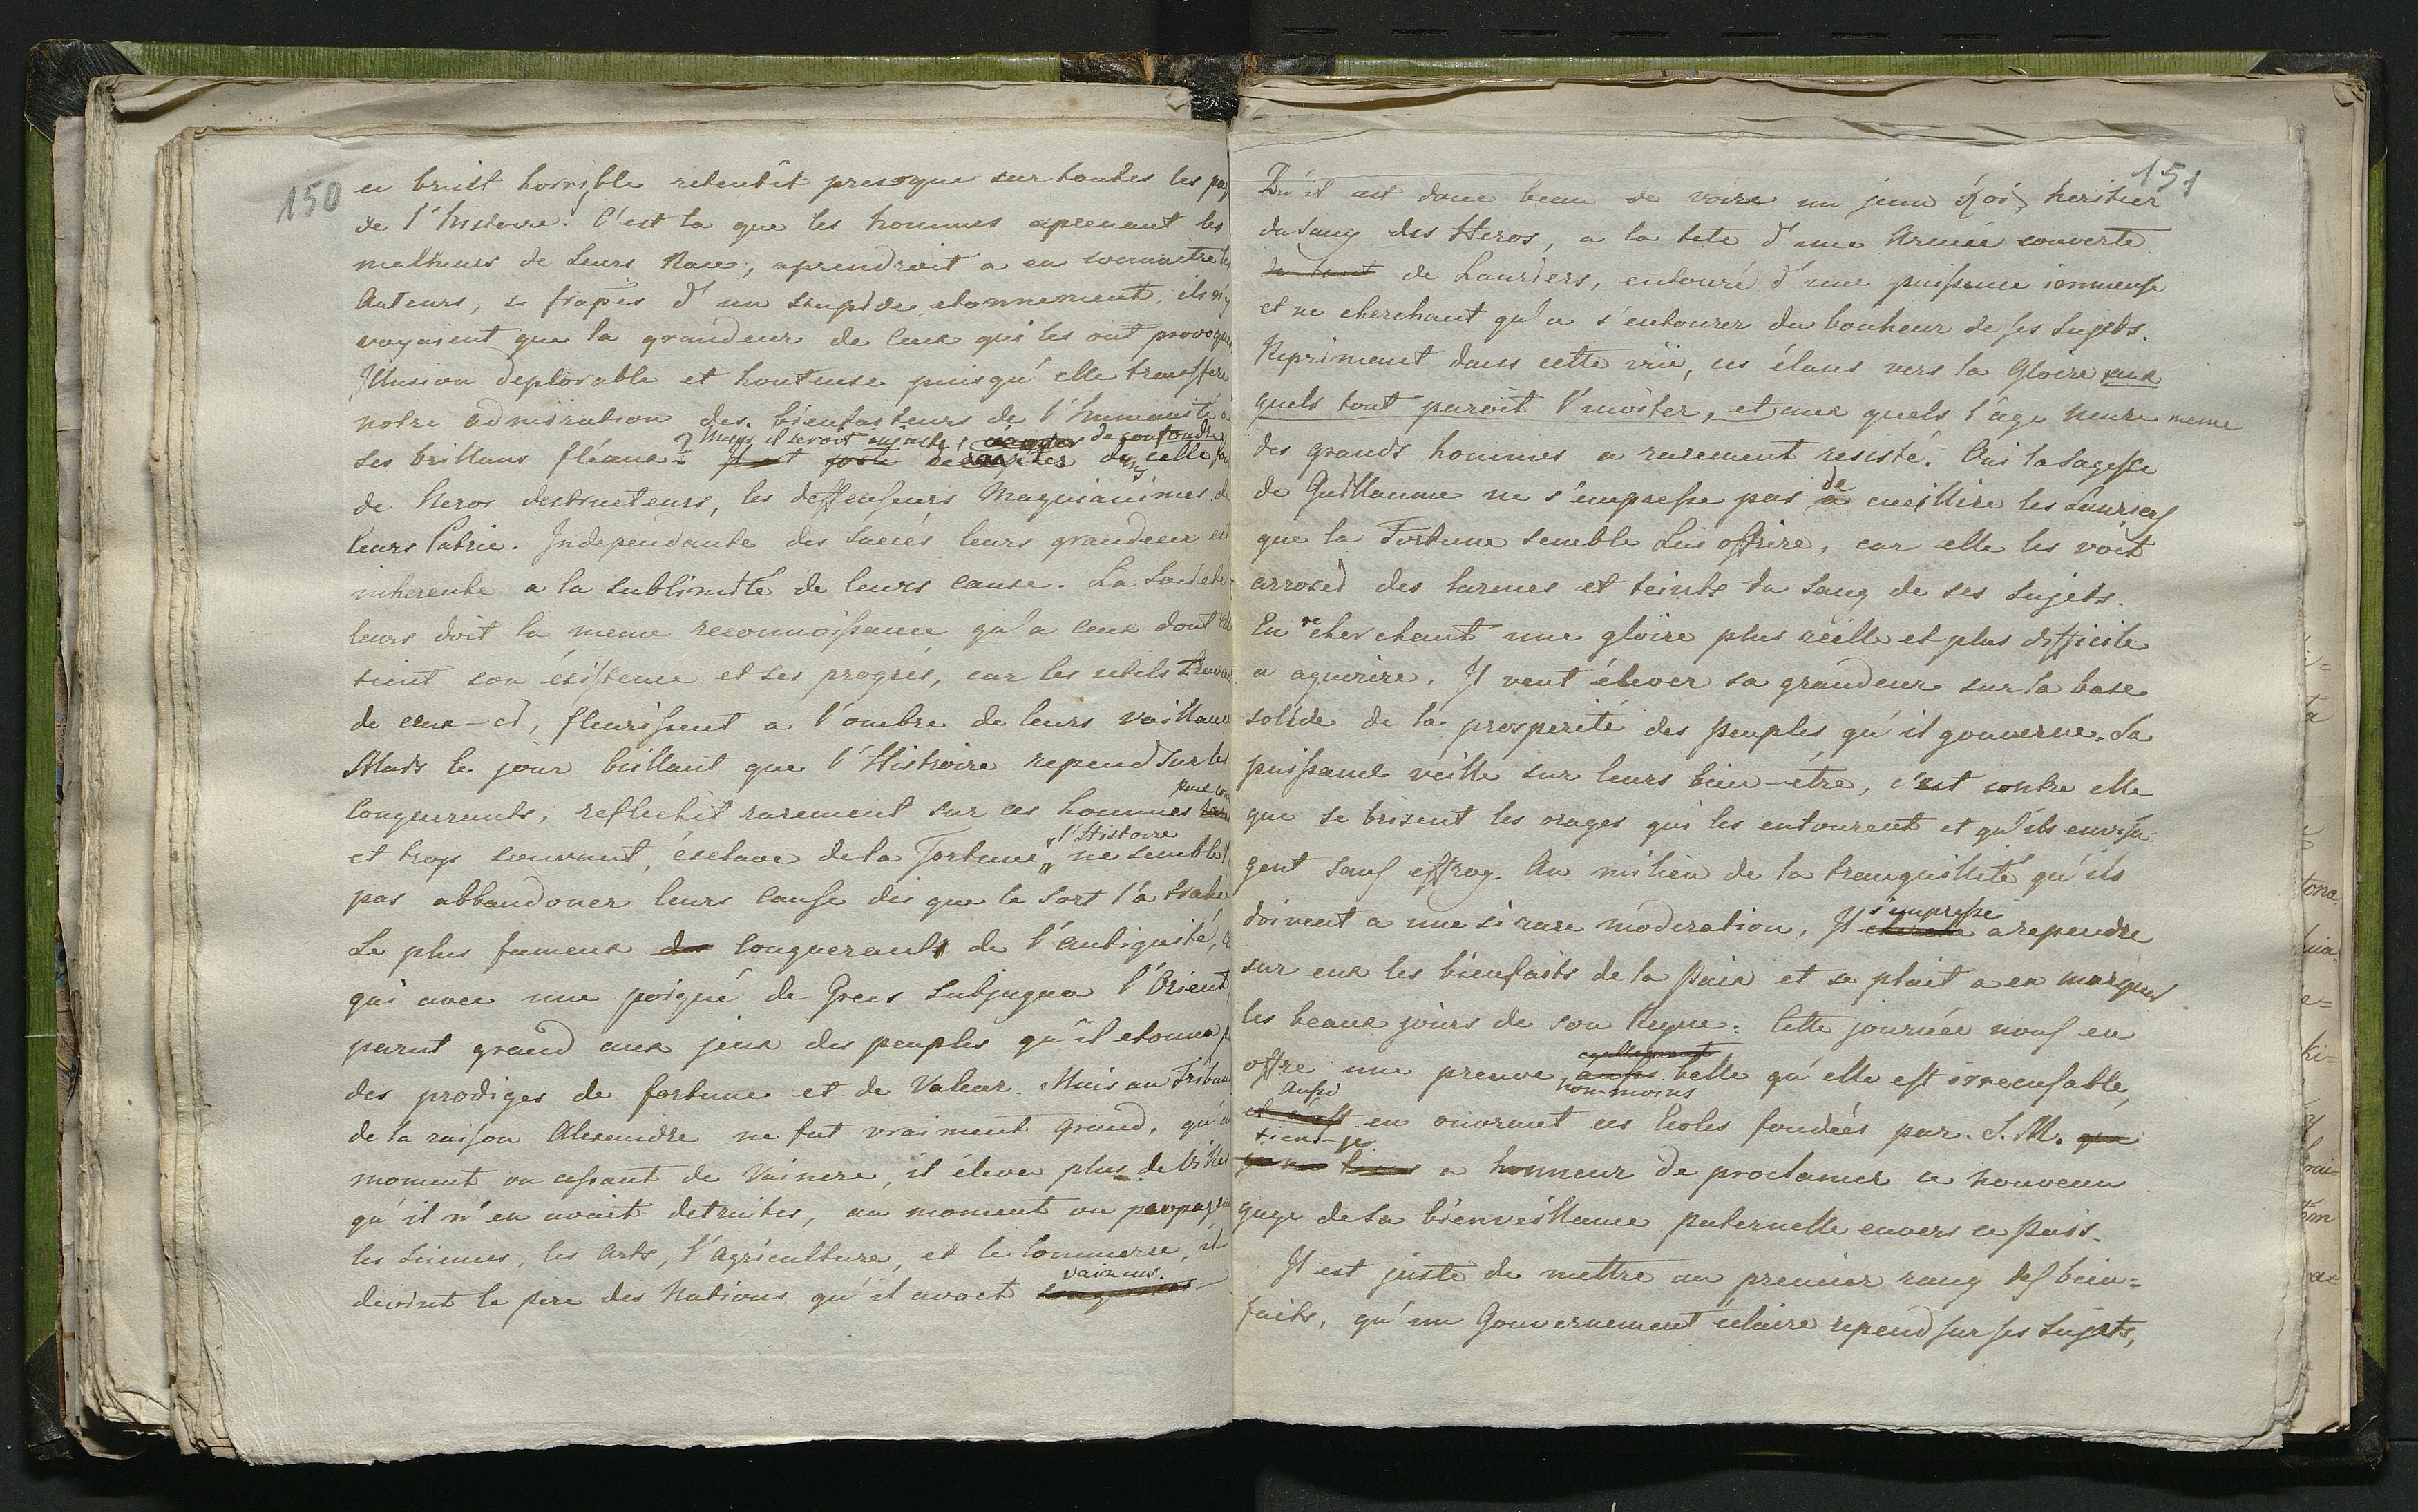 150
ce bruit horrible retentît presque sur toutes les pag
de l'histoire. C'est la que les hommes aprenant les
malheurs de Leurs Race, aprendroit a en connaitre les
Auteurs, si frapés d'un stupide etonnement, ils n'y
voyaient que la grandeur de Ceux qui les ont provoqué
Illusion deplorable et honteuse puisqu'elle transfere
notre admiration des bienfasteurs de l'humanité a
Mais il seroit injuste, de confondre
ses brillans fléaux.
de Heros destructeurs, les deffenseurs Magnanimes de
leurs Patrie. Independante des Succés leurs grandeur est
inherente a la sublimité de leurs cause. La Societé
leurs doit la meme reconnoissance qu'a Ceux dont elle
tient son éxistence et ses progrés, car les utils travau
de ceux-ci, fleurissent a l'ombre de leurs Vaillance
Mais le jour brillant que l'Histroire repend sur les
Conquerants, reflechit rarement sur ces hommes
et trop souvent, ésclave de la Fortune, l'Histoire ne semble t'
pas abbandoner leurs Cause dés que le sort l'a trahi
Le plus fameux des Conquerants de l'antiquité, ce
qui avec une poigné de Grecs Subjugua l'Orient
parut grand aux jeux des peuples qu'il etonna p
des prodiges de fortune et de Valeur. Mais au Tribun
de la raison Alexandre ne fut vraiment Grand, qu'a
moment ou cessant de Vaincre, il éleva plus de Villes
qu'il n'en avait detruites, au moment ou propagea
les Sciences, les Arts, l'Agriculture, et le Commerce, il
devint le pere des Nations qu'il avoit vaincus.
151
Qu'il est donc beau de voire un jeun Roi, heritier
du Sang des Heros, a la tete d'une Armée couverte
de tant de Lauriers, entouré d'une puissance immense
et ne cherchant qu'a s'entourer du bonheur de ses Sujets.
Reprimant dans cette vüe, ces élans vers la Gloire aux
quels tout paroit l'inviter, et aux quels l'age meure meme
des grands hommes a rarement resisté. Oui la Sagesse
de Guillaume ne s'empresse pas de cueillire les Lauriers
que la Fortune semble Lui offrire, car elle les voit
arrosés des larmes et teints du Sang de ses Sujets.
En recherchant une gloire plus réelle et plus difficile
a aquerire, Il veut élever sa grandeur sur la base
solide de la prosperité des peuples qu'il gouverne. Sa
puissance veille sur leurs bien-etre, c'est contre elle
que se brisent les orages qui les entourent et qu'ils envisa-
gent sans effroy. Au milieu de la tranquillité qu'ils
doivent a une si rare moderation, Il s'empresse a rependre
sur eux les bienfaits de la Paix et se plait a en marquer
les beaux jours de son Regne. Cette journée nous en
offre une preuve non moins belle qu'elle est irrecusable,
Aussi tient-je en ouvrant ces Ecoles fondées par S. M.
a honneur de proclamer ce nouveau
gage de Sa bienveillance paternelle envers ce Pais.
Il est juste de mettre au premier rang des bien=
faits, qu'un Gouvernement éclairé repend sur ses Sujets,